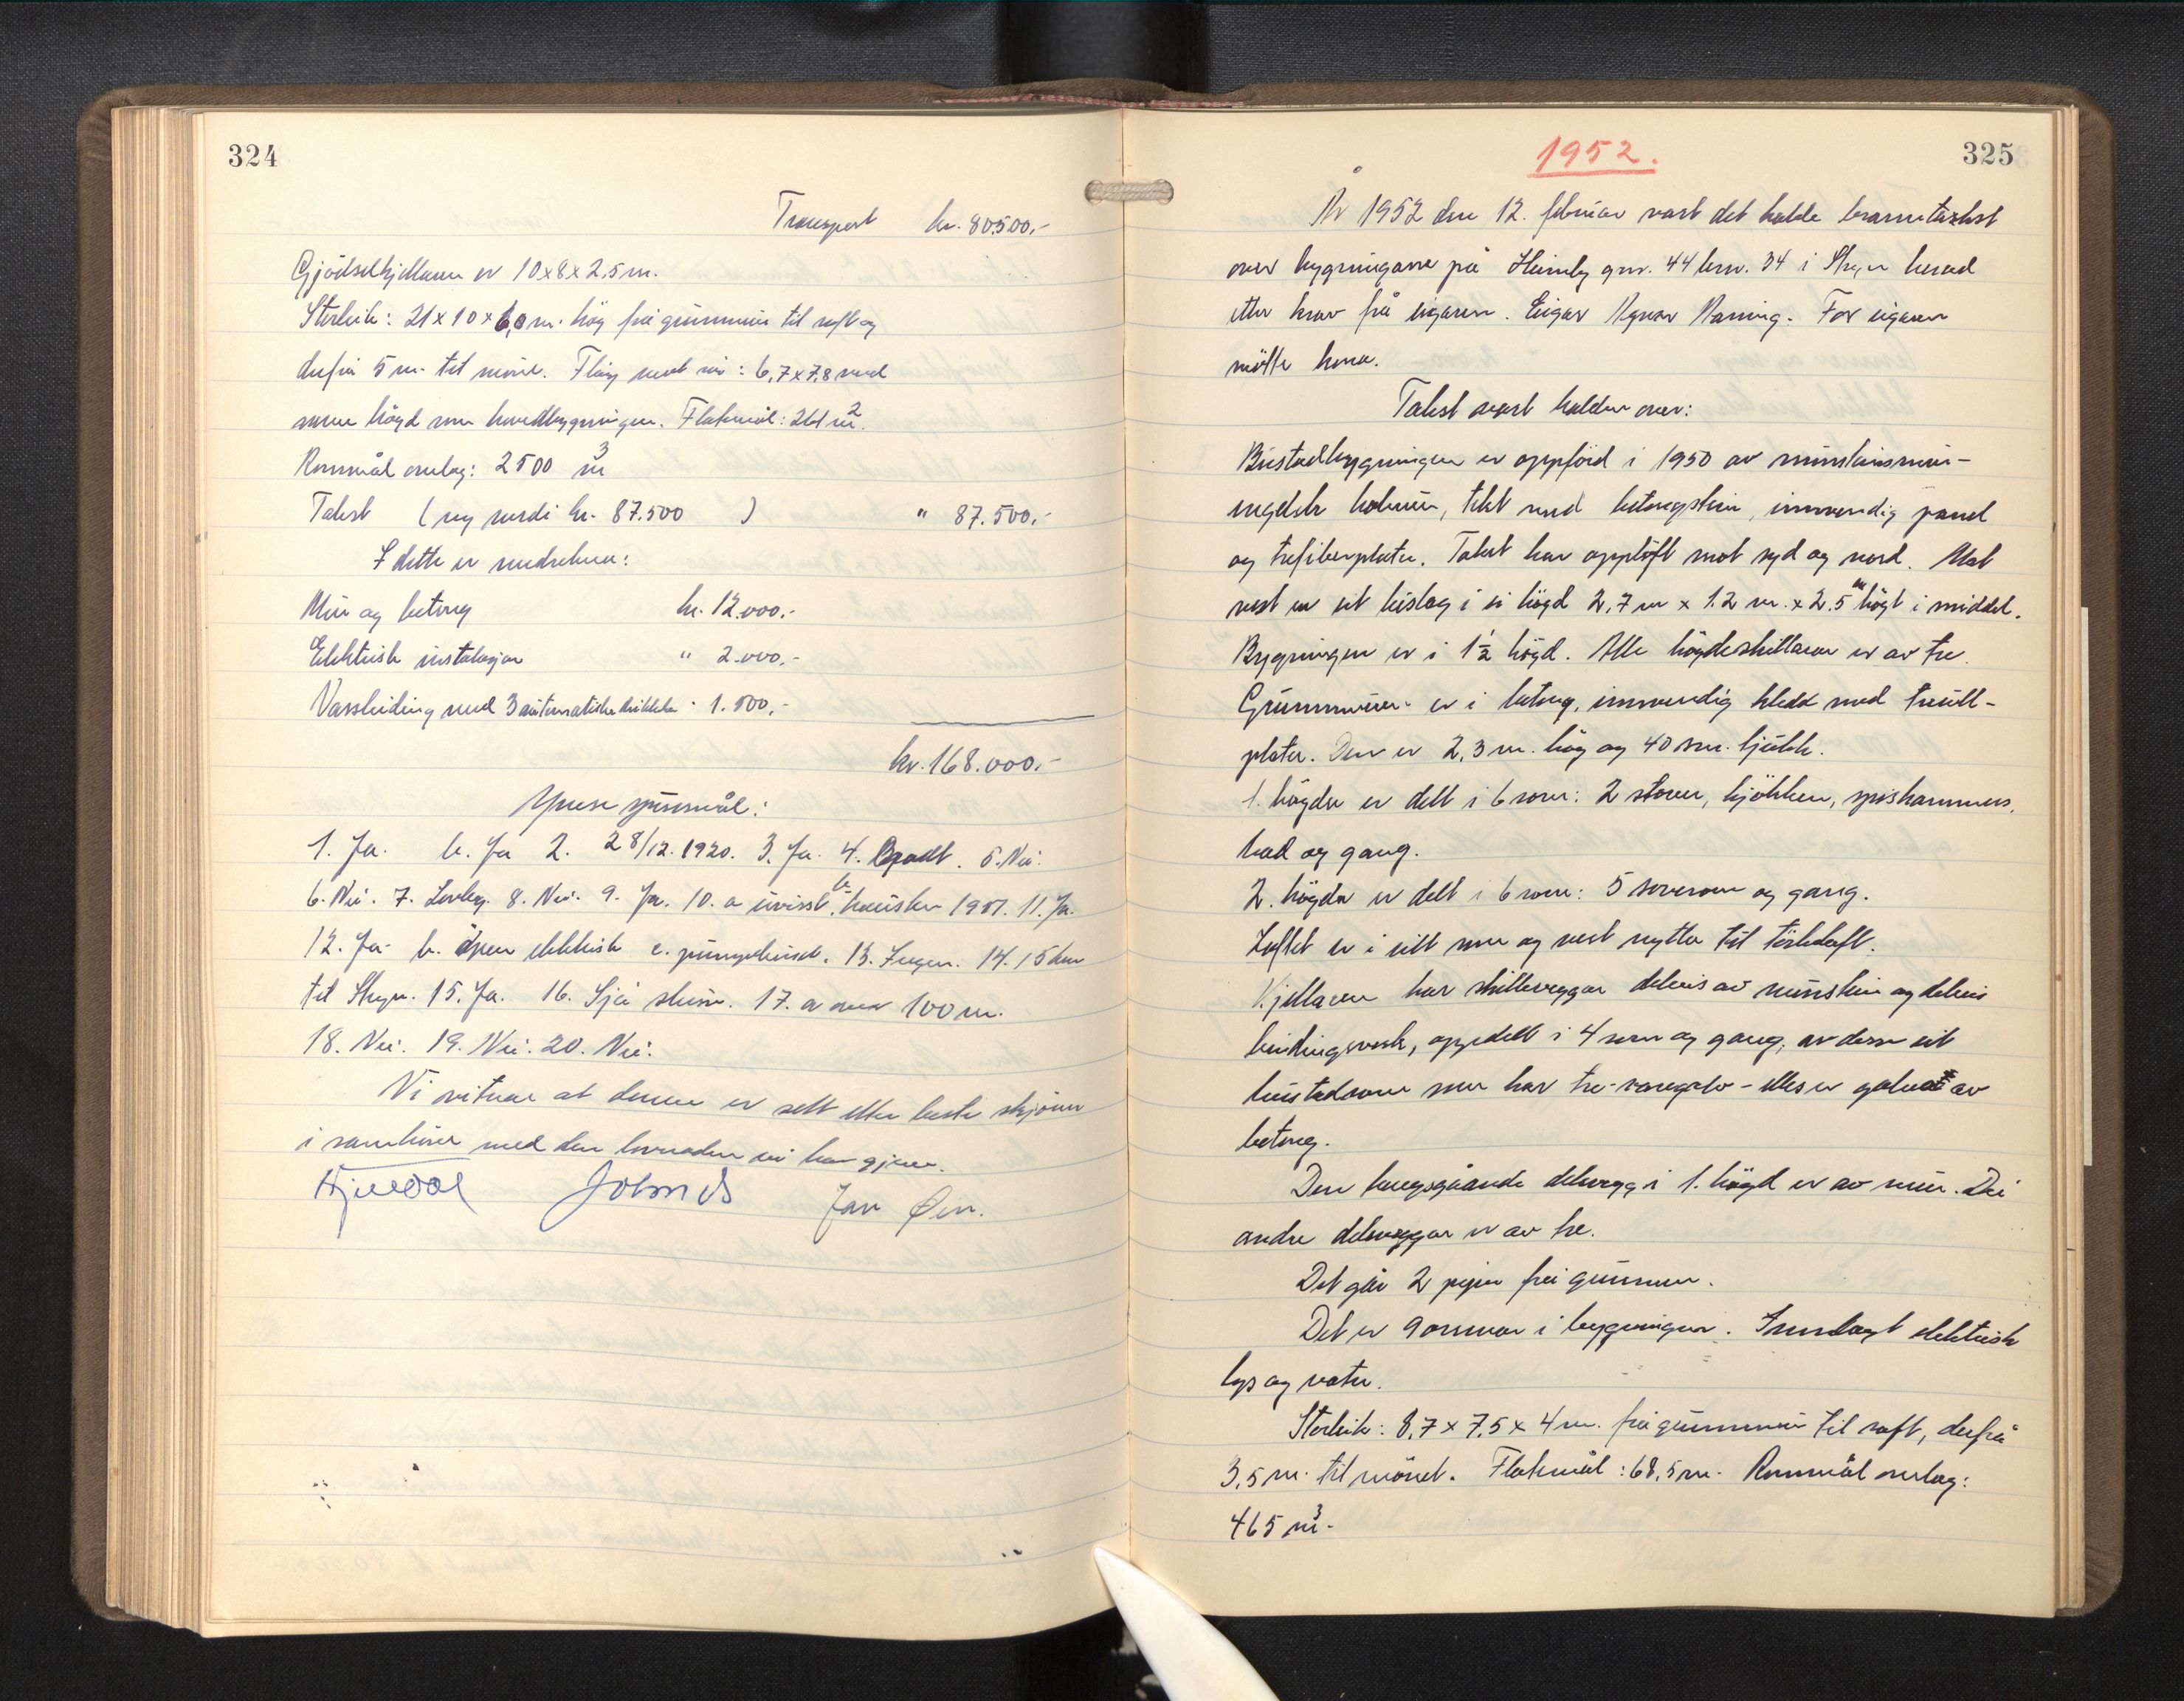 324
Transport kr. 80500,-
Gjödselkjellaren er 10x8x2,5 m.
Storleik: 21x10x6,0 m. høg frå grunnmur til raft og
derfrå 5 m. til møne. Fløy mot : 6,7x7,8 med
same högd som hovedbygningen. Flatemål: 261 m2.
Rommål omlag: 2500 m3
Takst (ny verdi kr. 87.500 ) " 87.500,-
I dette er medrekna:
Mur og betong kr. 12.000,-
Elektrisk instalasjon " 2.000,-
Vassleiding med 3 automatiske drikkekar " 1.500,-
kr. 168.000,-
Ymse spursmål:
1. Ja. b. Ja 2. 28/12.1920. 3. Ja. 4. Godt. 5. Nei.
6. Nei. 7. Lovleg. 8. Nei. 9. Ja. 10. a uvisst b. hausten 1951. 11. Ja.
12. Ja. b. open elektrisk c. 13. Ingen. 14. 15 km
til Stryn. 15. Ja. 16. Sjå skjema. 17. a over 100 m.
18. Nei. 19. Nei. 20. Nei.
Vi vitnar at denne er sett etter beste skjønn
i samhöve med den lovnaden vi har gjeve.
Jan Øvr.
1952.
325
År 1952 den 12. februar vart det halde branntakst
over bygningane på Heimly gnr. 44 bnr. 34 i Stryn herad
etter krav frå eigaren. Eigar Ragnar Rasning. For eigaren
møtte kona.
Takst vart halden over:
Bustadbygningen er oppförd i 1950 av mursteinsmur-
engelsk holmur, tekt med betongstein, innvendig panel
og trefiberplater. Taket har opplöft mot syd og nord. Mot
vest er eit bislag i ei högd 2,7 m x 1.2 m. x 2.5 m högt i middel.
Bygningen er i 1½ högd. Alle högdeskillarar er av tre.
Grunnmuren er i betong, innvendig kledd med treull-
plater. Den er 2,3 m. høg og 40 sm. tjukk.
1. högda er delt i 6 rom: 2 stover, kjökken, spiskammers,
bad og gang.
2. högda er delt i 6 rom: 5 soverom og gang.
Loftet er i eitt rom og vert nytta til tørkeloft.
Kjellaren har skilleveggar delvis av murstein og delvis
bindingsverk, oppdelt i 4 rom og gang, av desse eit
bustadrom som har tre-varegolv - elles er golvet av
betong.
Den langsgåande delevegg i 1. högd er av mur. Dei
andre deleveggar er av tre.
Det går 2 piper frå grunnen.
Det er 9 omnar i bygningen. Innlagt elektrisk
lys og vatn.
Storleik: 8,7 x 7,5 x 4 m. frå grunnmur til raft, derfrå
3,5 m. til mönet. Flatemål: 68,5 m. Rommål omlag:
465 m3.